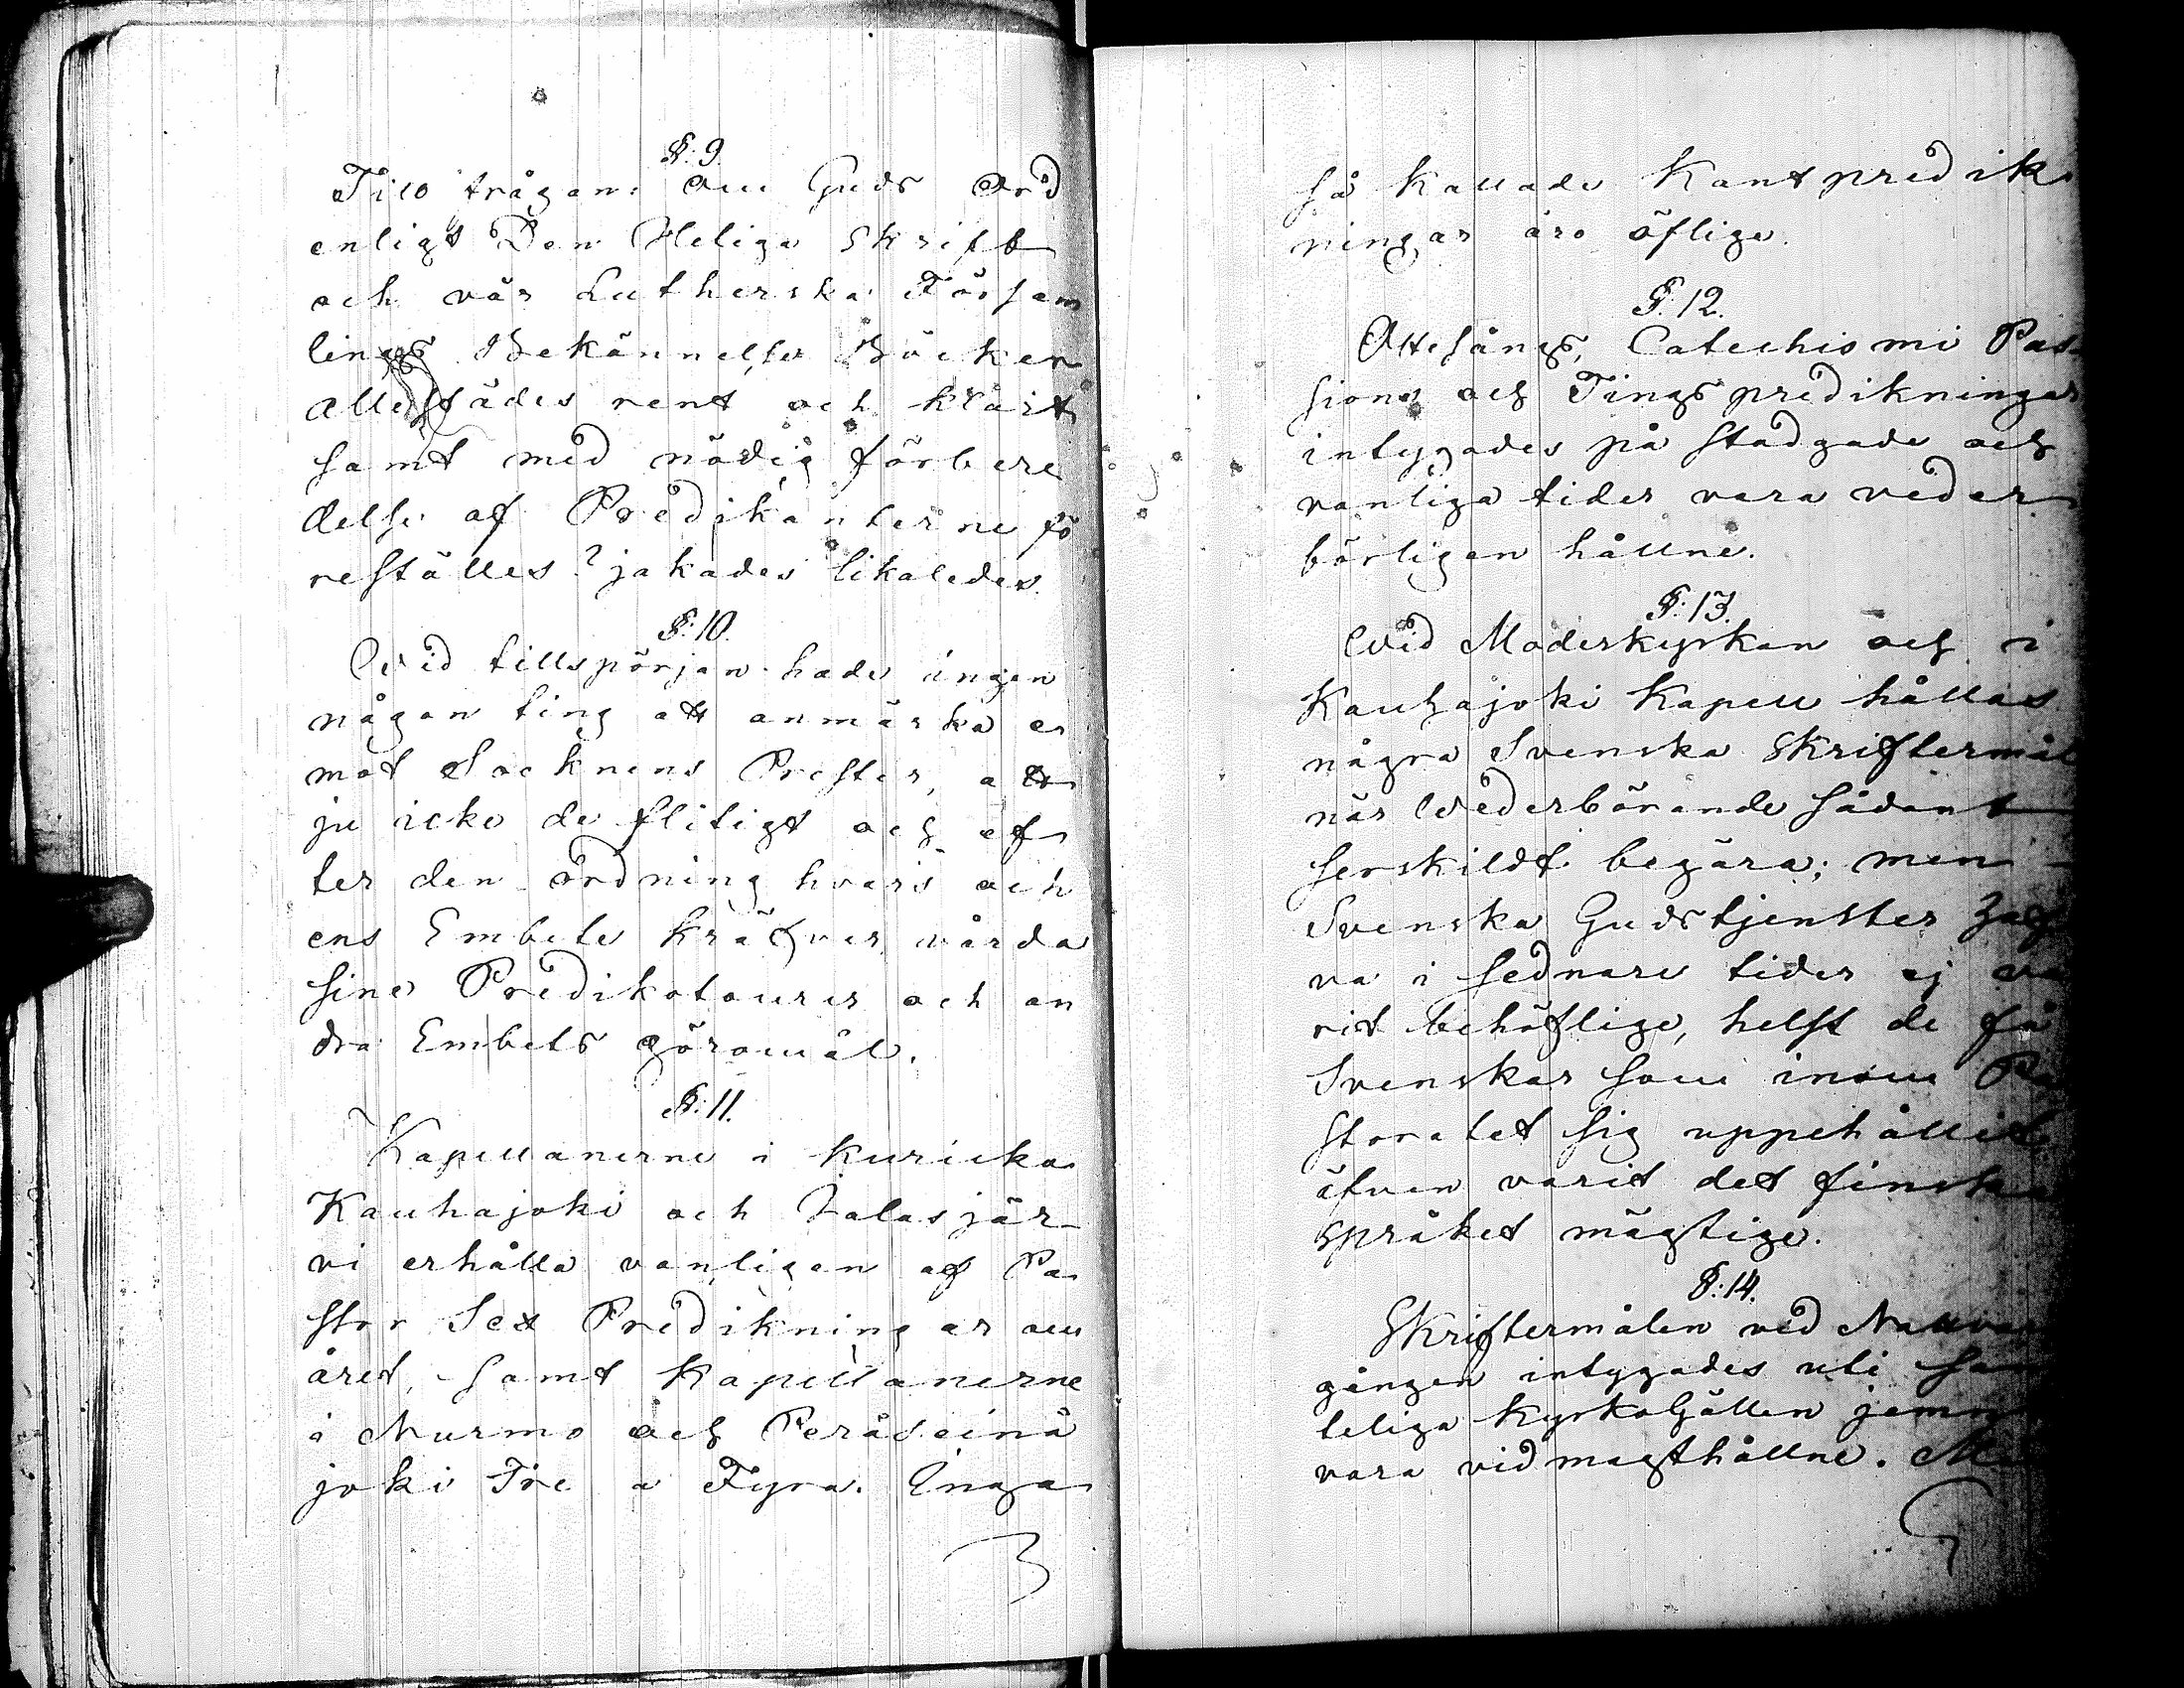 §: 9.
Till frågan: Om Guds Ord
enligt Den Heliga Skrift
och vår Lutherska Församlings Bekännelse Böcker
allestädes rent och klart
samt med nödig förbere
delse af Predikanterne fö
reställes? jakades likaledes.
§: 10.
Vid tillspörjan hade ingen
någon ting att anmärka e
mot Socknens Prester, att
ju icke de flitigt och ef
ter den ordning hvars och
ens Embete kräfver vårda
sine Predikotourer och an
dra Embets göromål.
§: 11.
Kapellanerne i Kuricka
Kauhajoki och Jalasjär-
vi erhålla vanligen af Pa
stor Sex Predikningar om
året, samt Kapellanerne
i Nurmo och Peräseinä
joki Tre a Fyra. Inga
så kallade Kantpredik
ningar äro öflige.
§: 12.
Ottesångs, Catechismi Pas-
sions och Tings predikningar
intygades på stadgade och
vanliga tider vara veder
börligen hållne.
§: 13.
Vid Moderkyrkan och i
Kauhajoki Kapell hållas
några Svenska Skriftermål
när Vederbörande sådant
serskildt begära; men
Svenska Gudstjenster haf
va i sednare tider ej va
rit behöflige, helst de få
Svenskar som inom Pa
storatet sig uppehållit,
äfven varit det finska
språket mägtige.
§: 14.
Skriftermålen vid Nattvard
gången intygades uti sam
teliga Kyrkogällen jemn
vara vidmagthållne.